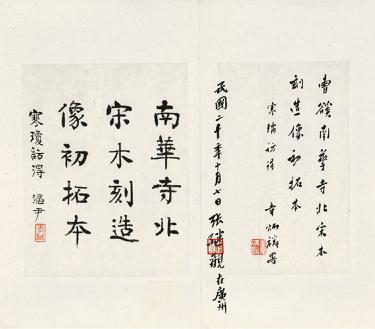 曹谿南華寺北宋木
刻造像初拓本
寒瓊訪得
民國二十年十月七日張
觀在廣州
南華寺北
宋木刻造
像初拓本
寒瓊訪得